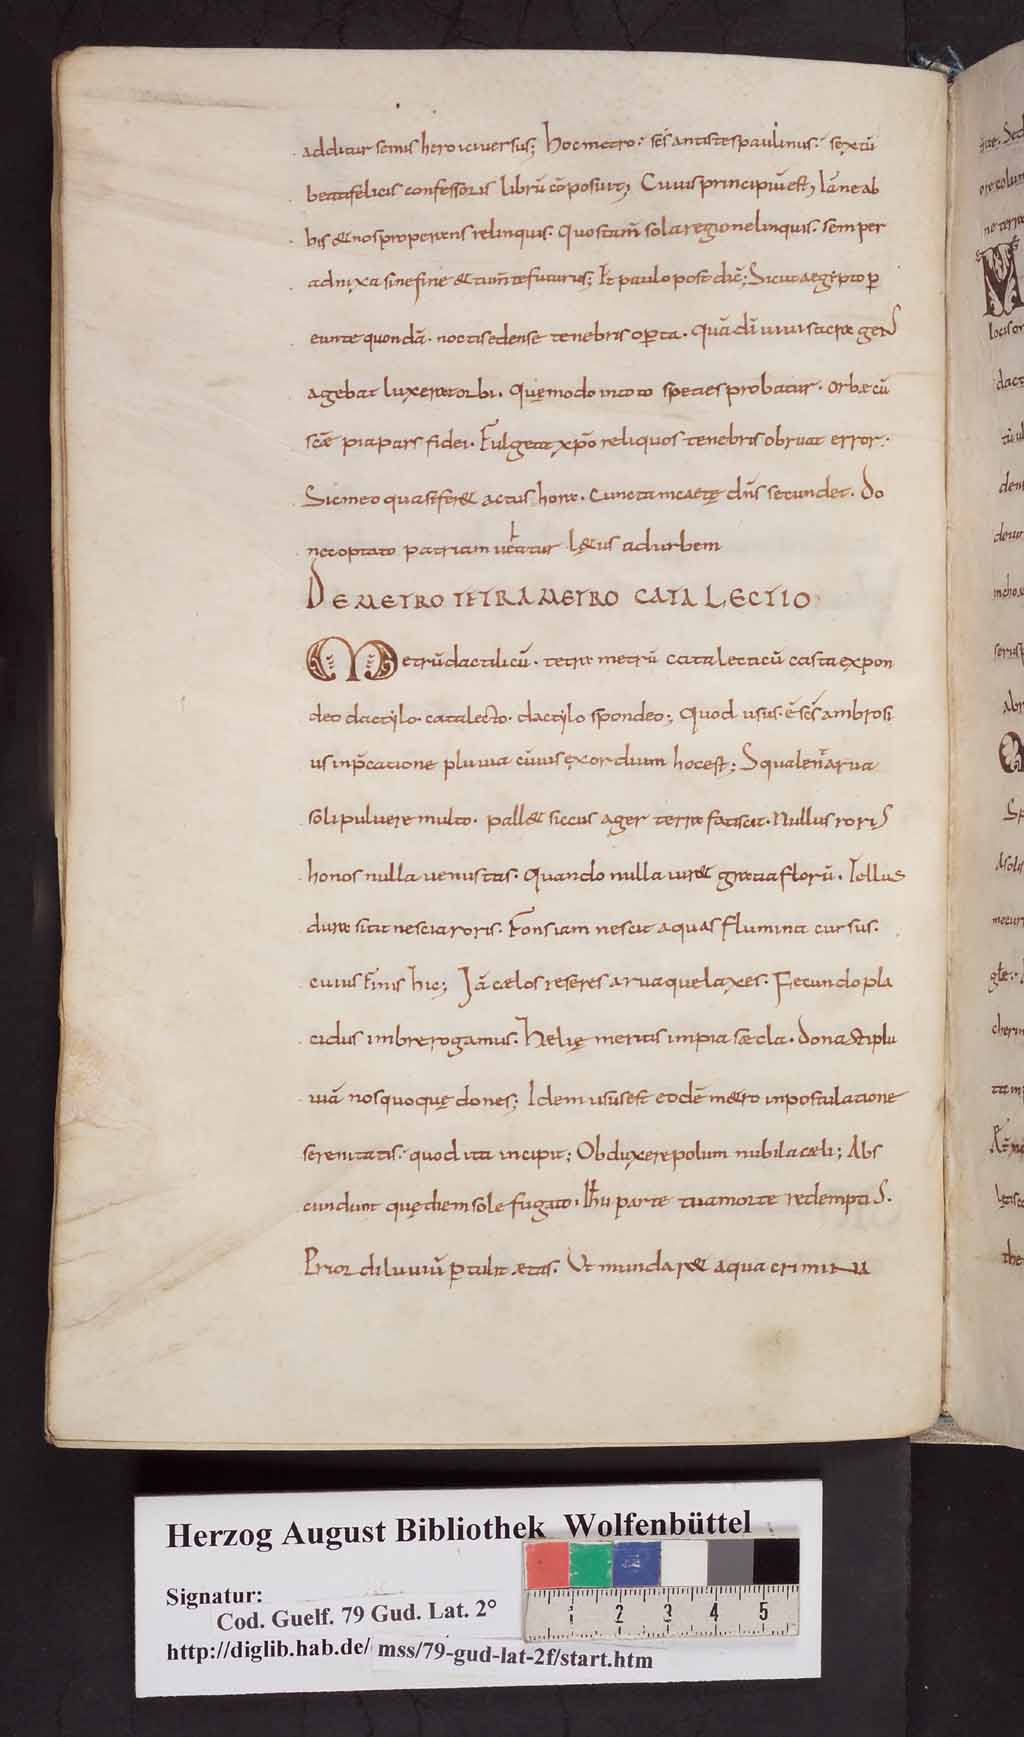 additur semis heroici uersus; hoc metro. scs antistes paulinus. sextū
beati felicis confessoris librū cōposuit; Cuius principiū est; Iāne ab
bis & nos properans relinquis. Quos tam̄ sola regione linquis. semper
adnixa sine fine & tum̄te futurus; It paulo post dic̄; Sicut aegipto p̄
eunte quondā. noctis edense tenebris op̄ta. Quā dī uiui sacrae gens
agebat lux erat orbi. Quę modo in toto species probatur. orbe cū
scāe pia pars fidei. Fulgeat xp̄o reliquos tenebris obruat error.
Sic meo qua sifer& actus hone. Cuncta me aetę dn̄s secundet. Do
nec optato patriam uehatur l&us ad urbem
DE METRO TETRAMETRO CATALECTIO
Metrū dactilicū. tetrametrū catalecticū casta ex pon
deo dactylo. catalecto. dactylo spondeo; Quod usus. ē scs ambrosi
us in p̄catione pluuia cuius exordium hoc est; Squalent arua
soli puluere multo. pall& siccus ager terra fatiscit. Nullus roris
honos nulla uenustas. Quando nulla uir& gratia florū. Tellus
dura sitit nescia roris. Fons iam nescit aquas flumina cursus.
cuius finis hic; Iā caelos reseres aruaque laxes. Fecundo pla
cidus imbre rogamus. Helię meritis impia saecla. donasti plu
uiā nos quoque dones; Idem usus est eodē m&ro in postulatione
serenitatis. quod ita incipit; Obduxere polum nubila caeli; Abs
cundunt quę diem sole fugato. Ihu parte tua morte redemptis.
Prior diluuiū p̄tulit aetas. Ut mundar& aqua crimina
Herzog August Bibliothek Wolfenbüttel
Signatur:
Cod. Guelf. 79 Gud. Lat. 2°
http://diglib.hab.de/ mss/79-gud-lat-2f/start.htm
1 2 3 4 5